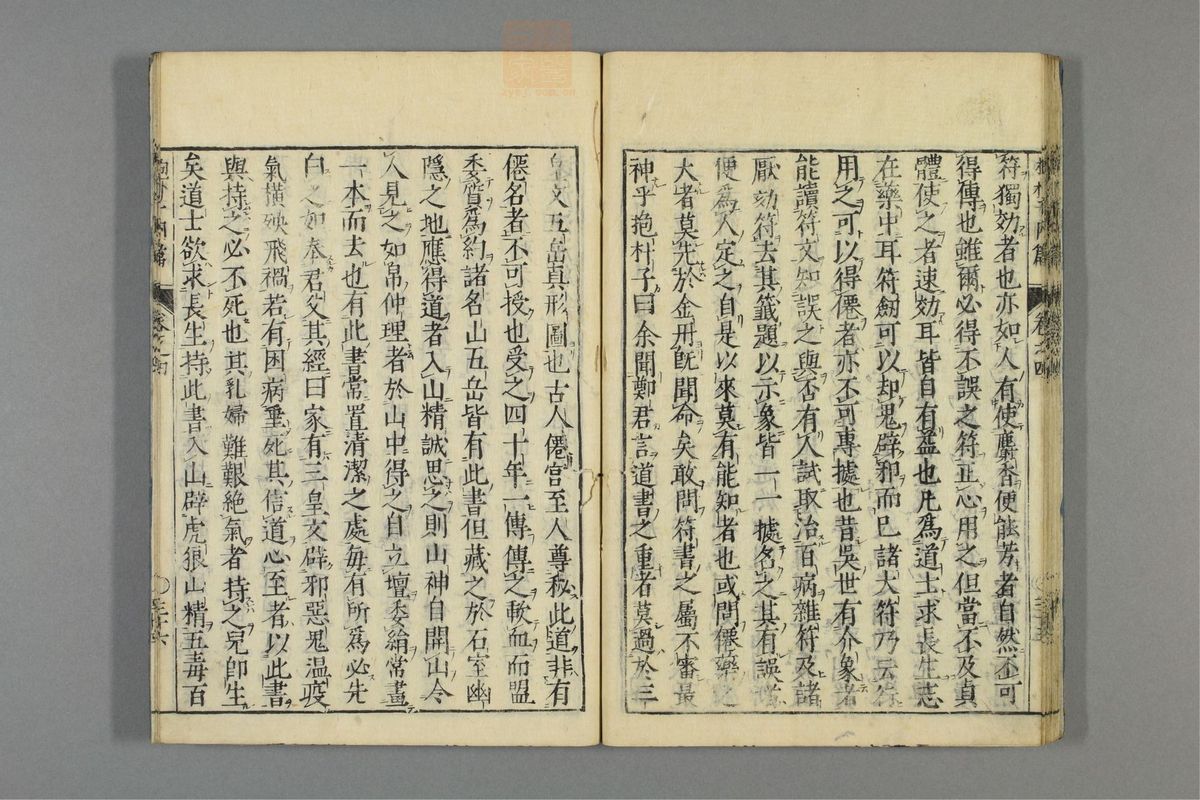 符獨効者也亦如人有使麝香便能芳者自然不可
得傳也雖爾必得不誤之符正心用之但當不及真
體使之者速効耳皆自有益也凡爲道士求長生志
在藥中耳符劔可以却鬼辟邪而已諸大符乃云行
用之可以得僊者亦不可專據也昔吳世有介象者
能讀符文知誤之與否有人試取治百病雜符及諸
厭効符去其籤題以示象皆一一據名之其有誤者
便爲人定之自是以來莫有能知者也或問僊藥之
大者莫先於金丹旣聞命矣敢問符書之屬不審最
神乎抱朴子曰余聞鄭君言道書之重者莫過於三
皇文五岳真形圖也古人僊官至人尊秘此道非有
僊名者不可授也受之四十年一傳傳之歃血而盟
委質爲約諸名山五岳皆有此書但藏之於石室幽
隱之地應得道者入山精誠思之則山神自開山令
人見之如帛仲理者於山中得之自立壇委絹常畫
一本而去也有此書常置清潔之處每有所爲必先
白之如奉君父其經曰家有三皇文辟邪惡鬼温疫
氣橫殃飛禍若有困病垂死其信道心至者以此書
與持之必不死也其乳婦難艱絶氣者持之兒卽生
矣道士欲求長生持此書入山辟虎狼山精五毒百